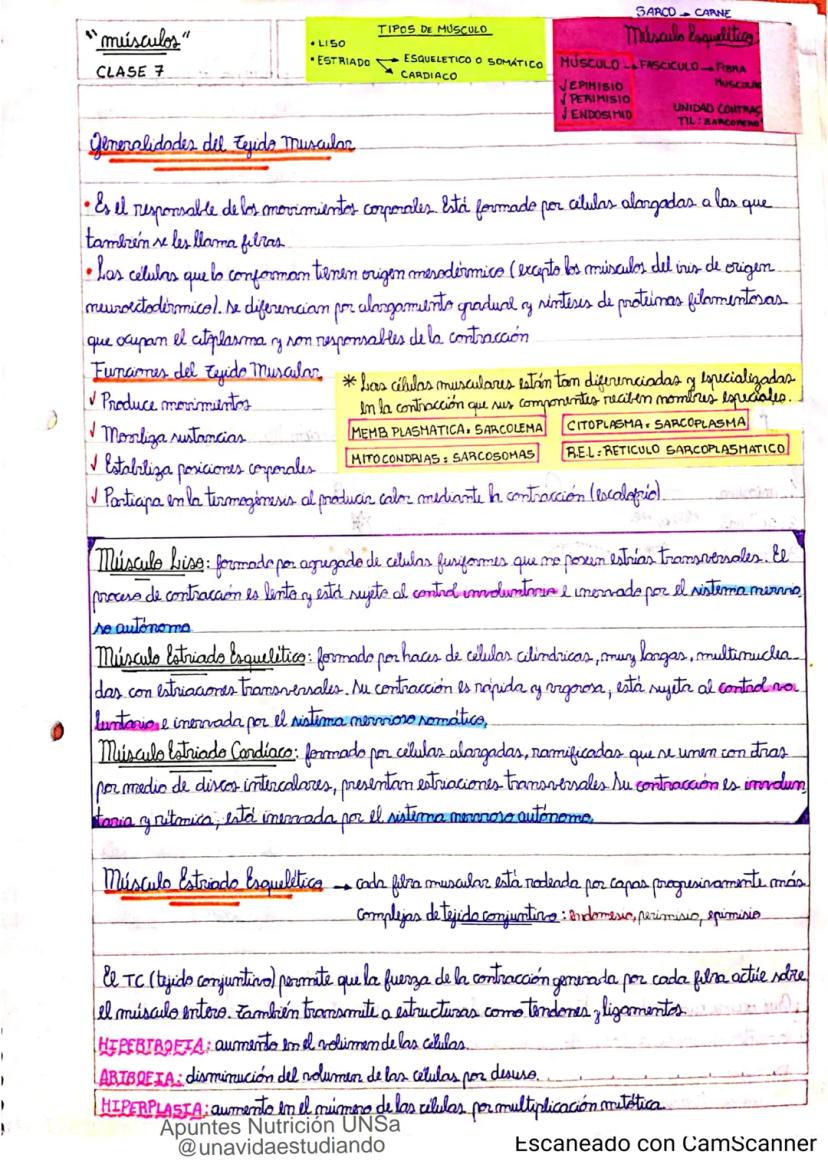 SARCO → CARNE
"músculos"
CLASE 7
TIPOS DE MÚSCULO
• LISO
• ESTRIADO → ESQUELETICO O SOMÁTICO
→ CARDIACO
Músculo Esquelético
MÚSCULO → FASCICULO → FIBRA
MUSCULAR
√ EPIMISIO
√ PERIMISIO
√ ENDOSIMIO
UNIDAD CONTRAC
TIL: SARCOMERO
Generalidades del Tejido Muscular
• Es el responsable de los movimientos corporales. Está formado por células alargadas a las que
también se les llama fibras
• Las células que lo conforman tienen origen mesodérmico (excepto los músculos del iris de origen
neuroectodérmico). Se diferencian por alargamiento gradual y síntesis de proteínas filamentosas
que ocupan el citoplasma y son responsables de la contracción
Funciones del Tejido Muscular
√ Produce movimientos
√ Moviliza sustancias
√ Estabiliza posiciones corporales
√ Participa en la termogénesis al producir calor mediante la contracción (escalofrío)
* Las células musculares están tan diferenciadas y especializadas
en la contracción que sus componentes reciben nombres especiales.
MEMB. PLASMATICA: SARCOLEMA
CITOPLASMA: SARCOPLASMA
MITOCONDRIAS: SARCOSOMAS
R.E.L: RETICULO SARCOPLASMATICO
Músculo Liso: formado por agregado de células fusiformes que no poseen estrías transversales. El
proceso de contracción es lento y está sujeto al control involuntario e inervado por el sistema nervio
so autónomo
Músculo Estriado Esquelético: formado por haces de células cilíndricas, muy largas, multinuclea
das con estriaciones transversales. Su contracción es rápida y vigorosa, está sujeta al control vo
luntario e inervada por el sistema nervioso somático.
Músculo Estriado Cardíaco: formado por células alargadas, ramificadas que se unen con otras
por medio de discos intercalares, presentan estriaciones transversales Su contracción es involun
taria y rítmica, está inervada por el sistema nervioso autónomo.
Músculo Estriado Esquelético → cada fibra muscular está rodeada por capas progresivamente más
complejas de tejido conjuntivo: Endomesio, perimisio, epimisio
El TC (tejido conjuntivo) permite que la fuerza de la contracción generada por cada fibra actúe sobre
el músculo entero. También transmite a estructuras como tendones y ligamentos
HIPERTROFIA: aumento en el volumen de las células
ARTROFIA: disminución del volumen de las células por desuso.
HIPERPLASIA: aumento en el número de las células por multiplicación mitótica
Apuntes Nutrición UNSa
@unavidaestudiando
Escaneado con CamScanner